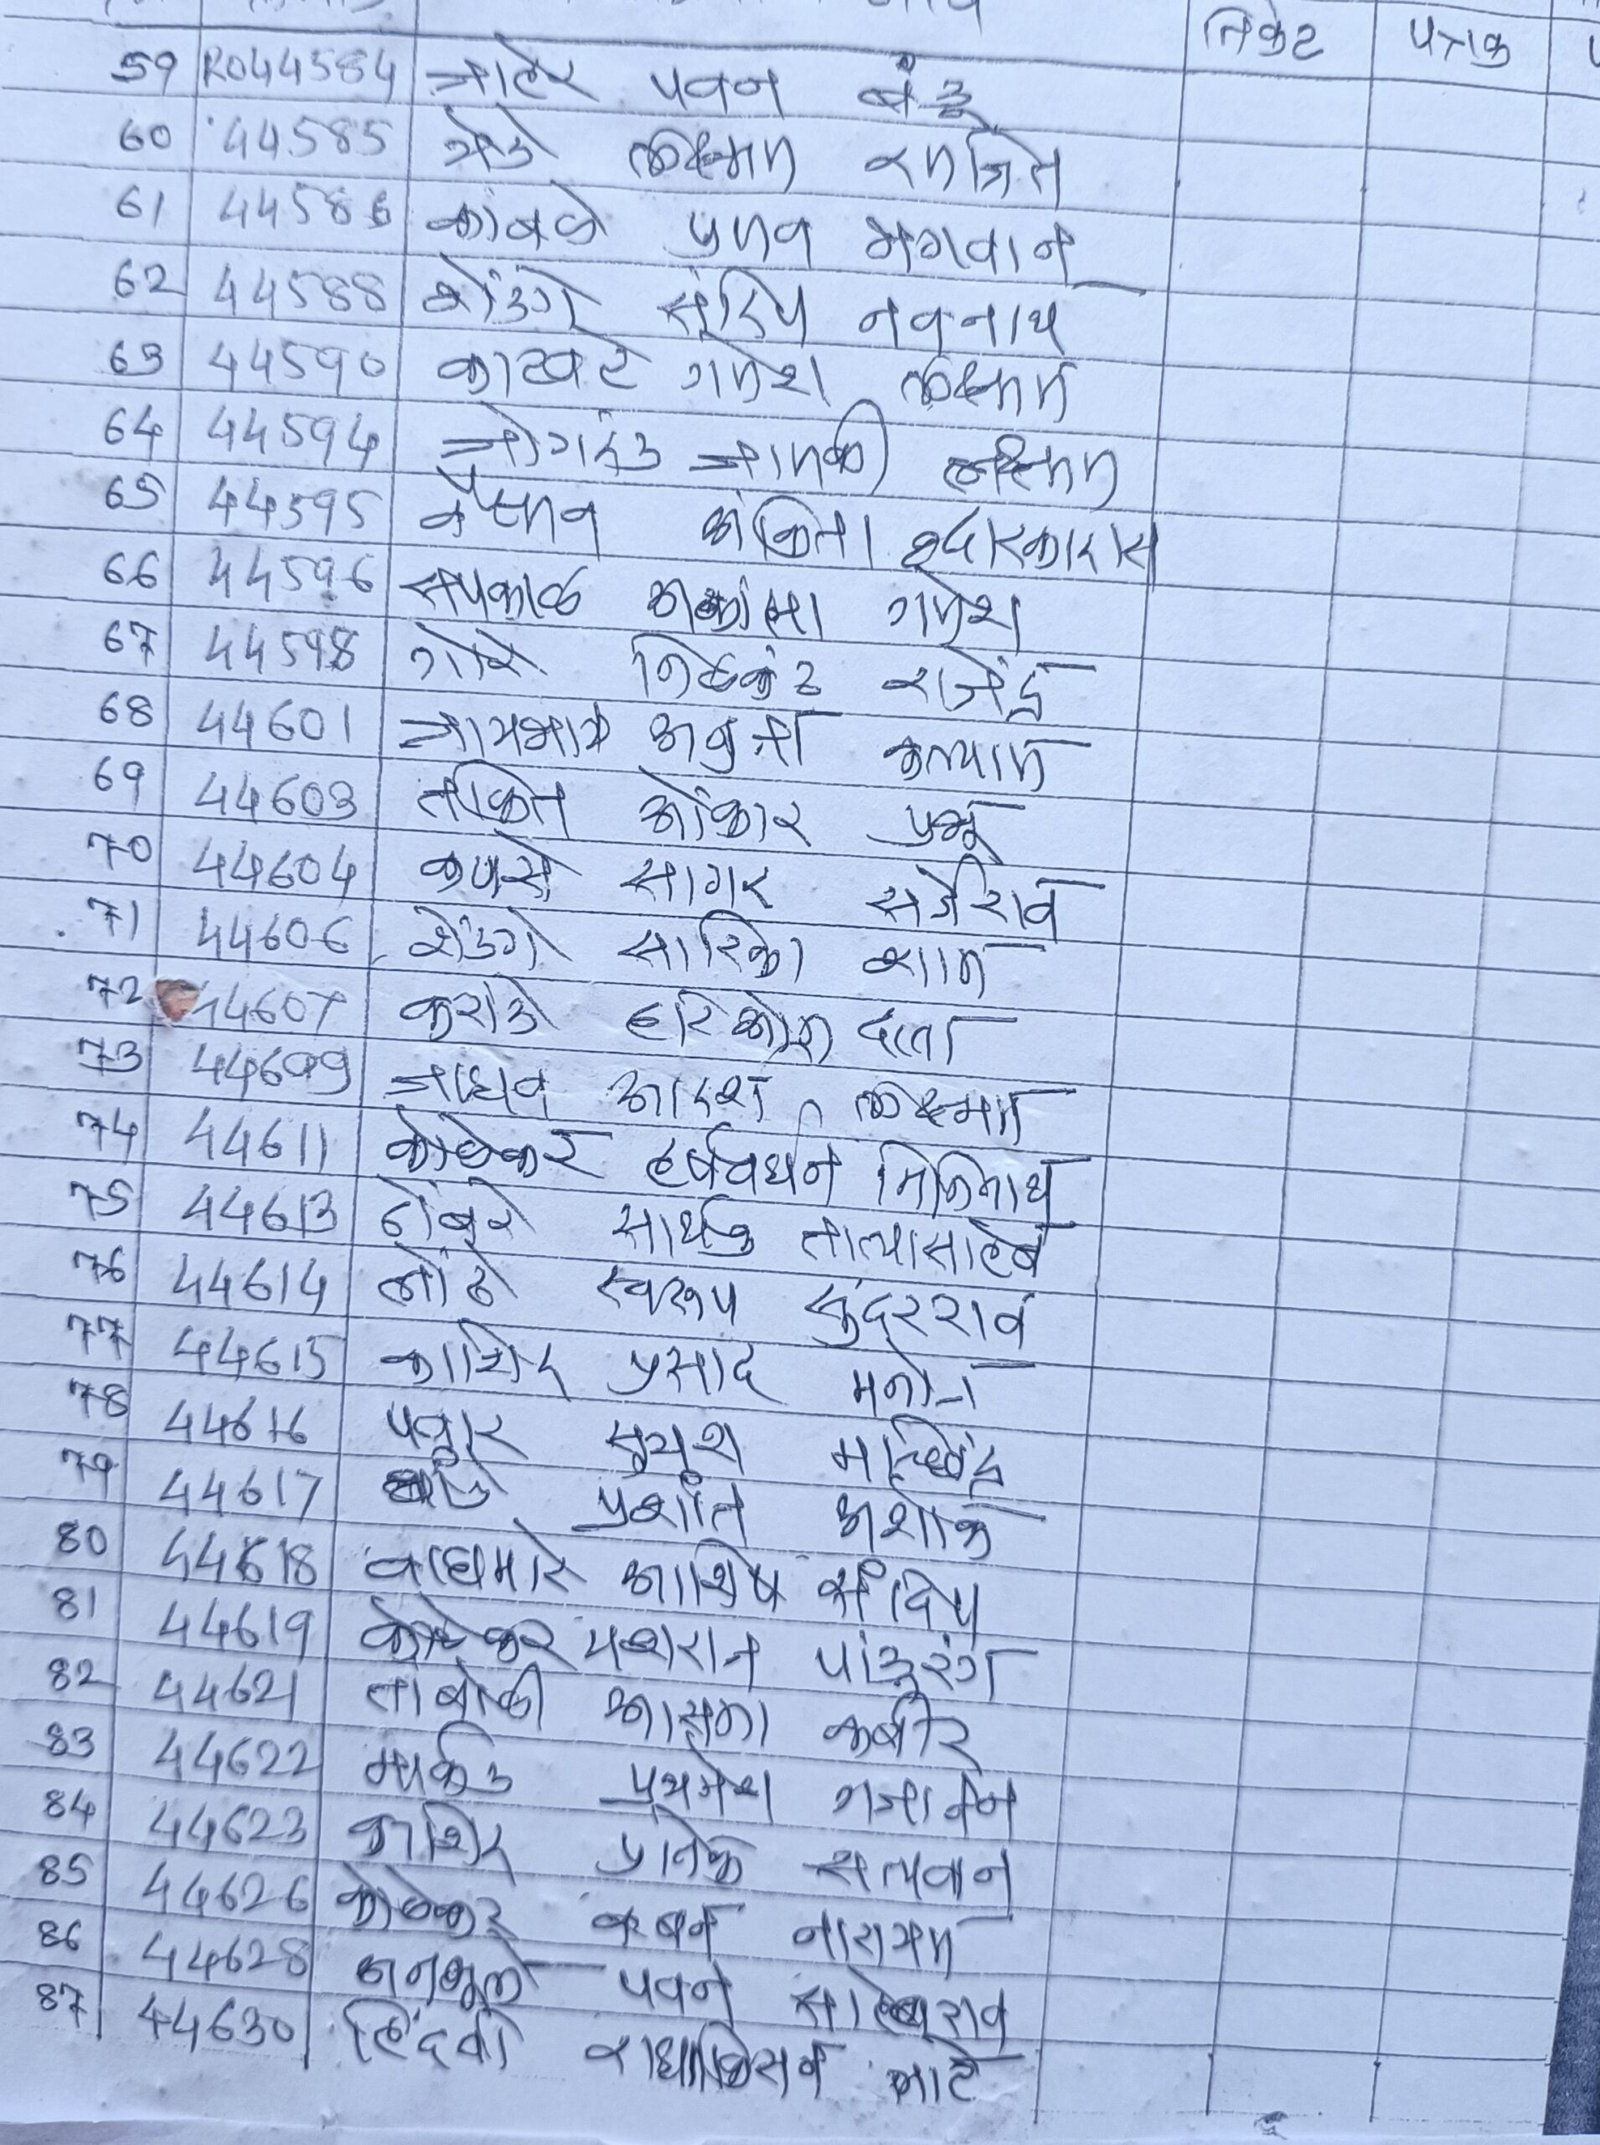 तिकेट पत्रक
59 R044584 जाहेर पवन बंडू
60 44585 शेंडे लक्ष्मण रणजित
61 44586 कांबळे प्रणव भगवान
62 44588 शेंडगे संदिप नवनाथ
63 44590 काटवटे गणेश लक्ष्मण
64 44594 जोगदंड जानकी लक्ष्मण
65 44595 वैष्णव अंकिता
66 44596 सपकाळ अकांक्षा गणेश
67 44598 गोरे निळकंठ राजेंद्र
68 44601 जायभाये कल्याण
69 44603 ओंकार प्रभू
70 44604 कपसे सागर सर्जेराव
71 44606 शेंडगे सारिका शाम
72 44607 कराडे दत्ता
73 44609 जाधव आदर्श लक्ष्मण
74 44611 कोळेकर हर्षवर्धन
75 44613 ठोंबरे सार्थक तात्यासाहेब
76 44614 लोंढे स्वरूप सुंदरराव
77 44615 काशिद प्रसाद मनोज
78 44616 पवार सुयश मच्छिंद्र
79 44617 प्रशांत अशोक
80 44618 वाघमारे आशिष संदिप
81 44619 कोळेकर यशराज पांडूरंग
82 44621 तांबोळी आसमा कबीर
83 44622 मार्कड प्रथमेश गजानन
84 44623 काशिद प्रतिक सत्यवान
85 44626 कोळेकर नारायण
86 44628 अनभूले पवन साहेबराव
87 44630 हिंदवी राधाकिसन